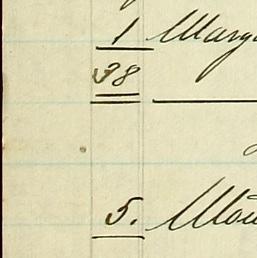 1 Marg
38
5.